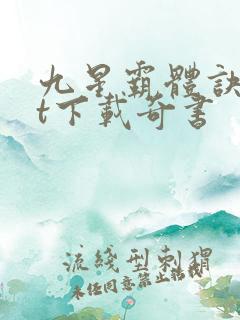 九星霸體訣
t下載奇書
流綫型刺猬
未任同意禁止转载